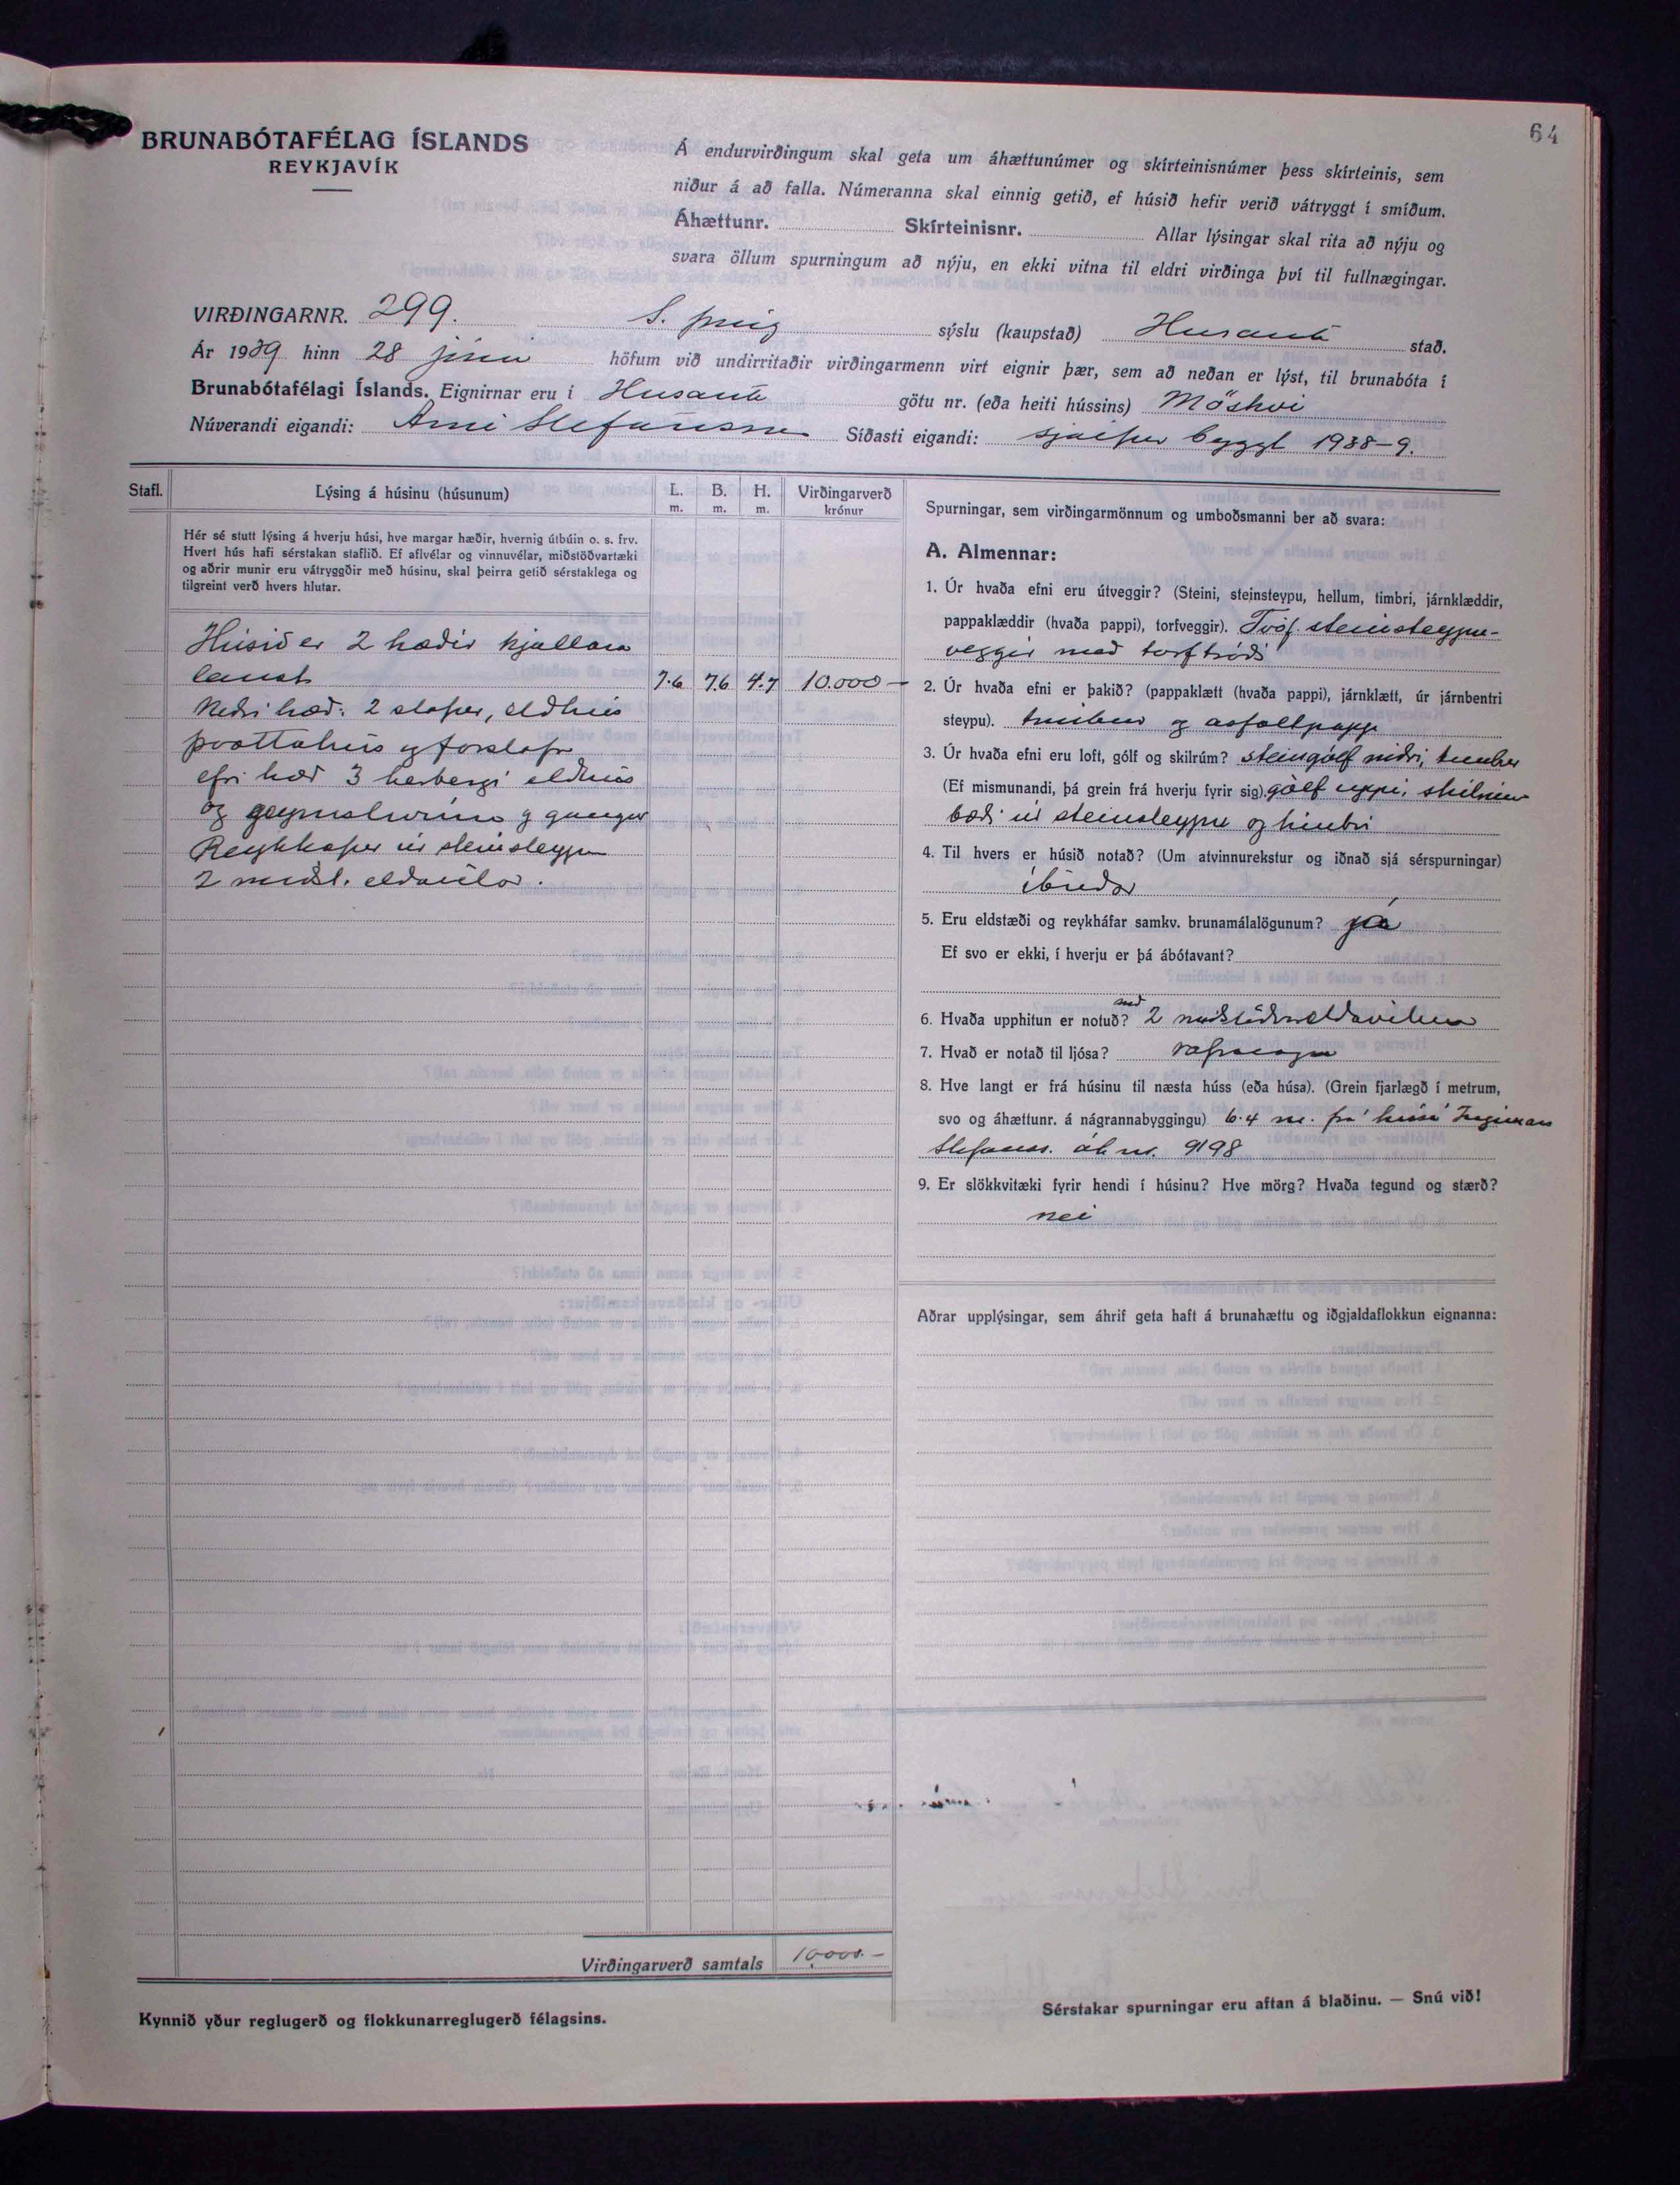 64
BRUNABÓTAFÉLAG ÍSLANDS
REYKJAVÍK
Á endurvirðingum skal geta um áhættunúmer og skírteinisnúmer þess skírteinis, sem
niður á að falla. Númeranna skal einnig getið, ef húsið hefir verið vátryggt í smíðum.
Áhættunr. Skírteinisnr. Allar lýsingar skal rita að nýju og
svara öllum spurningum að nýju, en ekki vitna til eldri virðinga því til fullnægingar.
VIRÐINGARNR. 299. S. þing sýslu (kaupstað) Húsavík stað.
Ár 1939 hinn 28 júní höfum við undirritaðir virðingarmenn virt eignir þær, sem að neðan er lýst, til brunabóta í
Brunabótafélagi Íslands. Eignirnar eru í Húsavík götu nr. (eða heiti hússins)
Núverandi eigandi: Árni Stefánsson Síðasti eigandi: sjálfur byggt 1938-9.
Stafl. Lýsing á húsinu (húsunum) L. m. B. m. H. m. Virðingarverð krónur
Hér sé stutt lýsing á hverju húsi, hve margar hæðir, hvernig útbúin o. s. frv.
Hvert hús hafi sérstakan staflið. Ef aflvélar og vinnuvélar, miðstöðvartæki
og aðrir munir eru vátryggðir með húsinu, skal þeirra getið sérstaklega og
tilgreint verð hvers hlutar.
Húsið er 2 hæðir kjallara
laust 7.6 7.6 4.7 10.000 -
Neðri hæð: 2 stofur, eldhús
þvottahús og forstofa
efri hæð 3 herbergi eldhús
og geymslurúm og gangur
Reykháfur úr steinsteypu
2 miðst. eldavélar.
Virðingarverð samtals 10.000.-
Kynnið yður reglugerð og flokkunarreglugerð félagsins.
Spurningar, sem virðingarmönnum og umboðsmanni ber að svara:
A. Almennar:
1. Úr hvaða efni eru útveggir? (Steini, steinsteypu, hellum, timbri, járnklæddir,
pappaklæddir (hvaða pappi), torfveggir). Tvöf. steinsteypu-
veggir með torftróði
2. Úr hvaða efni er þakið? (pappaklætt (hvaða pappi), járnklætt, úr járnbentri
steypu). timbur og asfaltpappi
3. Úr hvaða efni eru loft, gólf og skilrúm? steingólf niðri, timbur
(Ef mismunandi, þá grein frá hverju fyrir sig). gólf uppi, skilrúm
bæði úr steinsteypu og timbri
4. Til hvers er húsið notað? (Um atvinnurekstur og iðnað sjá sérspurningar)
íbúðar
5. Eru eldstæði og reykháfar samkv. brunamálalögunum? já
Ef svo er ekki, í hverju er þá ábótavant?
6. Hvaða upphitun er notuð? með 2 miðstöðvareldavélum
7. Hvað er notað til ljósa? rafmagn
8. Hve langt er frá húsinu til næsta húss (eða húsa). (Grein fjarlægð í metrum,
svo og áhættunr. á nágrannabyggingu) 6.4 m. frá húsi Ingimars
Stefánss. áh nr. 9198
9. Er slökkvitæki fyrir hendi í húsinu? Hve mörg? Hvaða tegund og stærð?
nei
Aðrar upplýsingar, sem áhrif geta haft á brunahættu og iðgjaldaflokkun eignanna:
Sérstakar spurningar eru aftan á blaðinu. — Snú við!